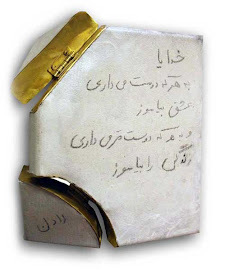 خدایا
به هر که دوست می داری
عشق بیاموز
و به هر که دوست تر می داری
زندگی را بیاموز
رادن